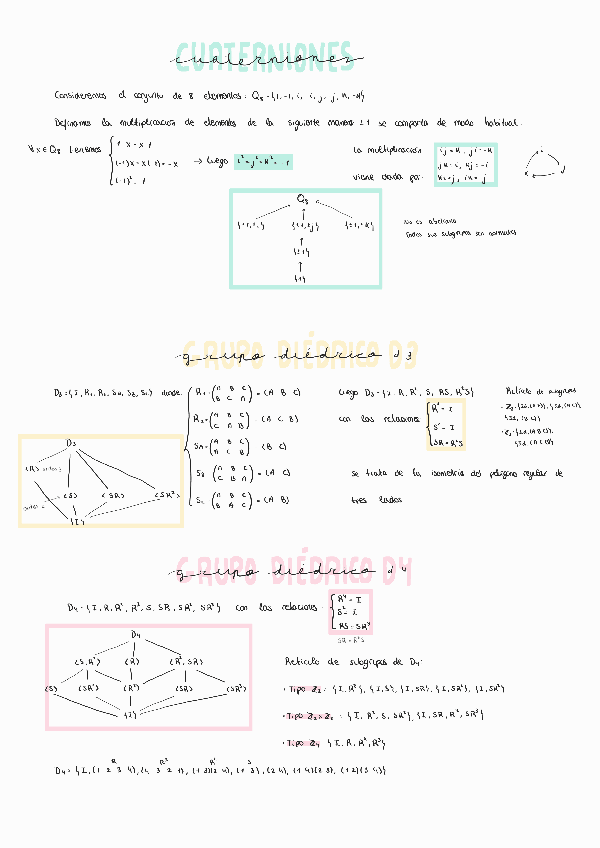 CUATERNIONES
cuaterniones
Consideremos el conjunto de 8 elementos: Q₈ = {1, -1, i, -i, j, -j, k, -k}
Definamos la multiplicación de elementos de la siguiente manera ±1 se comporta de modo habitual.
∀ x ∈ Q₈ tenemos
1·x = x·1
(-1)x = x(-1) = -x
(-1)² = 1
→ luego i² = j² = k² = -1
la multiplicación
viene dada por:
ij = k, ji = -k
jk = i, kj = -i
ki = j, ik = -j
i
k
j
Q₈
{±1, ±i}
{±1, ±j}
{±1, ±k}
{±1}
{1}
No es abeliano
Todos sus subgrupos son normales
GRUPO DIÉDRICO D3
grupo diédrico d3
D₃ = {I, R₁, R₂, SA, SB, SC} donde
R₁ = (A B C / B C A) = (A B C)
R₂ = (A B C / C A B) = (A C B)
SA = (A B C / A C B) = (B C)
SB = (A B C / C B A) = (A C)
SC = (A B C / B A C) = (A B)
luego D₃ = {I, R, R², S, RS, R²S}
con las relaciones
R³ = I
S² = I
SR = R²S
Retículo de subgrupos
se trata de la isometría del polígono regular de
tres lados
D₃
⟨R⟩ orden 3
⟨S⟩
⟨SR⟩
⟨SR²⟩
orden 2
{I}
GRUPO DIÉDRICO D4
grupo diédrico d4
D₄ = {I, R, R², R³, S, SR, SR², SR³} con las relaciones:
R⁴ = I
S² = I
RS = SR³
SR = R³S
D₄
⟨S, R²⟩
⟨R⟩
⟨R², SR⟩
⟨S⟩
⟨SR²⟩
⟨R²⟩
⟨SR⟩
⟨SR³⟩
{I}
Retículo de subgrupos de D₄:
· Tipo Z₂: {I, R²}, {I, S}, {I, SR}, {I, SR²}, {I, SR³}
· Tipo Z₂×Z₂: {I, R², S, SR²}, {I, SR, R², SR³}
· Tipo Z₄ {I, R, R², R³}
D₄ = {I, (1 2 3 4), (4 3 2 1), (1 3)(2 4), (1 3), (2 4), (1 4)(2 3), (1 2)(3 4)}